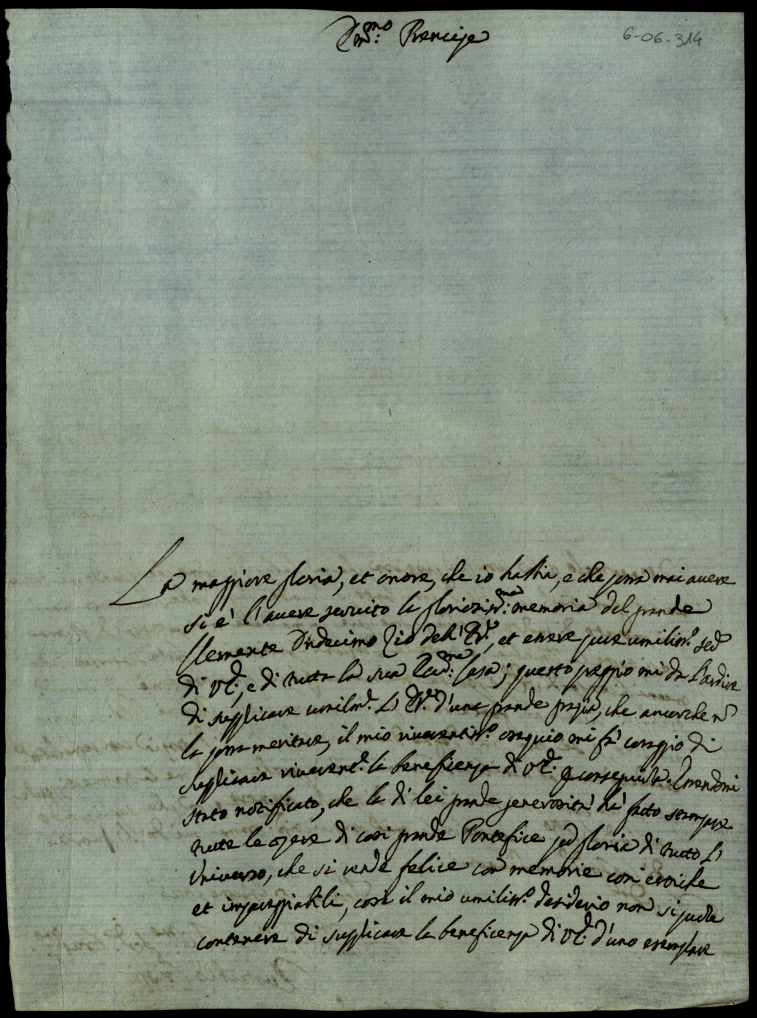 Em.mo Prencipe
6-06-314
La maggiore gloria, et onore, che io habbia, e che possa mai avere
si è l'avere servito la glorios.ma memoria del grande
Clemente Undecimo Zio dell' et essere pure umiliss.o
di V.E., e di tutta la sua Casa; questo preggio mi dà l'ardire
di supplicare umilm.e d'una grande grazia, che ancorche n
la possa meritare, il mio riverentiss.o ossequio mi fà coraggio di
supplicare riverent.e la beneficenza di V.E. p conseguirla. Essendomi
stato notificato, che la di lei grande generosità hà fatto stampare
tutte le opere di così grande Pontefice p gloria di tutto l'
Universo, che si rende felice con memorie così eroiche
et impareggiabili, così il mio umiliss.o desiderio non si puole
contenere di supplicare la beneficenza di V.E. d'uno esemplare